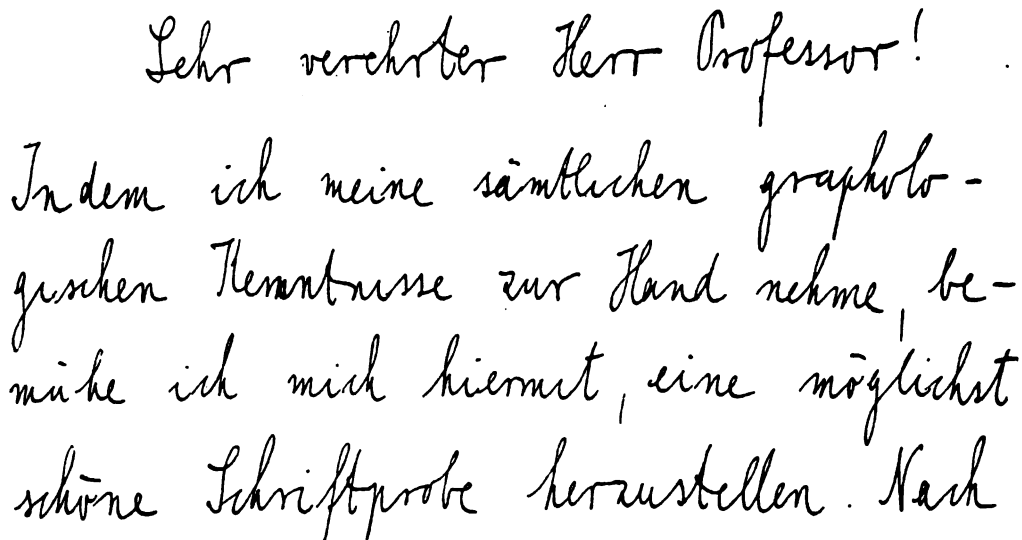 Sehr verehrter Herr Professor!
Indem ich meine sämtlichen grapholo-
gischen Kenntnisse zur Hand nehme, be-
mühe ich mich hiermit, eine möglichst
schöne Schriftprobe herzustellen. Nach